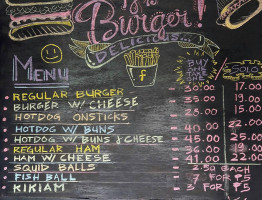 Burger!
DELICIOUS...
MENU
BUY 1 TAKE ONE
SOLO
REGULAR BURGER - 17.00
BURGER W/ CHEESE - 35.00 19.00
HOTDOG ONSTICKS - 15.00
HOTDOG W/ BUNS - 40.00 22.00
HOTDOG W/ BUNS & CHEESE - 45.00
REGULAR HAM - 36.00
HAM W/ CHEESE - 41.00 22.00
SQUID BALLS - 2.50 EACH
FISH BALL - 7 FOR ₱5
KIKIAM - 3 FOR ₱5